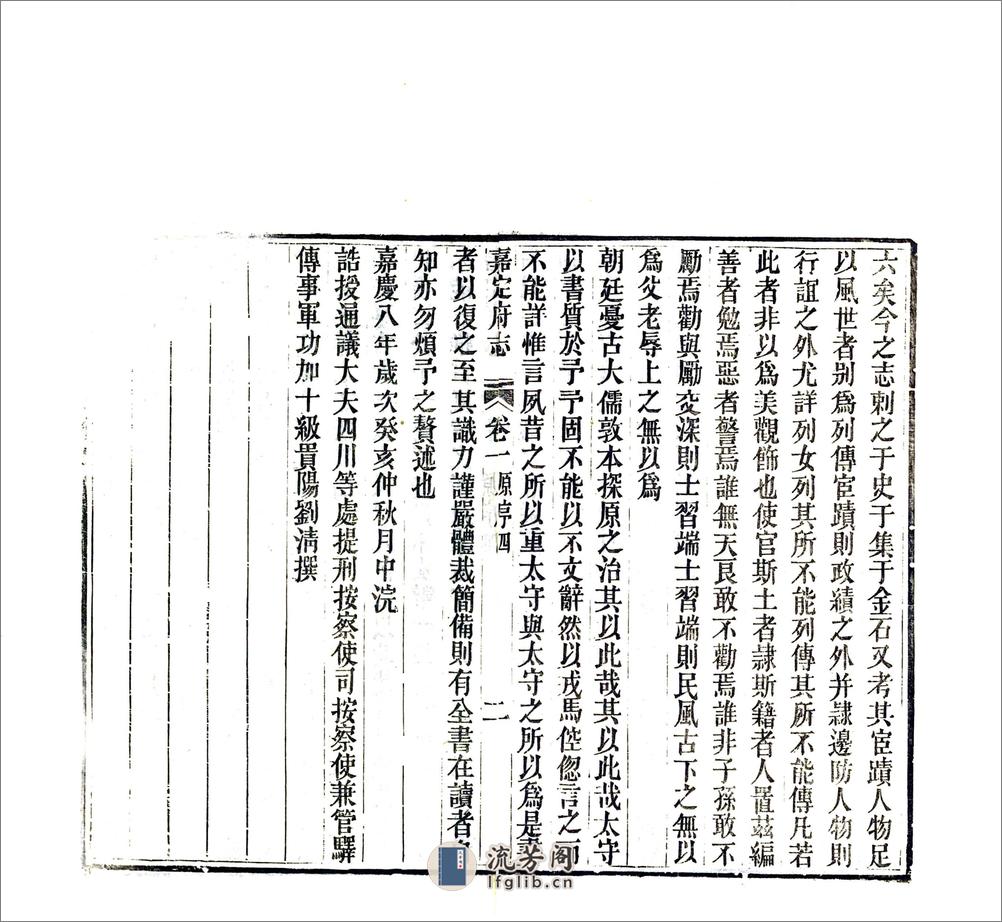 六矣今之志剌之于史于集于金石又考其宦蹟人物足
以風世者别為列傳宦蹟則政績之外并隷邊防人物則
行誼之外尤詳列女列其所不能列傳其所不能傳凡若
此者非以為美觀飾也使官斯土者隷斯籍者人置茲編
善者勉焉惡者警焉誰無天良敢不勸焉誰非子孫敢不
勵焉勸與勵交深則士習端士習端則民風古下之無以
為父老辱上之無以為
朝廷憂古大儒敦本探原之治其以此哉其以此哉太守
以書質於予予固不能以不文辭然以戎馬倥偬言之而
不能詳惟言夙昔之所以重太守與太守之所以為是書
嘉定府志 卷一 原序四 二
者以復之至其識力謹嚴體裁簡備則有全書在讀者自
知亦勿煩予之贅述也
嘉慶八年歲次癸亥仲秋月中浣
誥授通議大夫四川等處提刑按察使司按察使兼管驛
傳事軍功加十級貴陽劉清撰
流芳阁
lfglib.cn